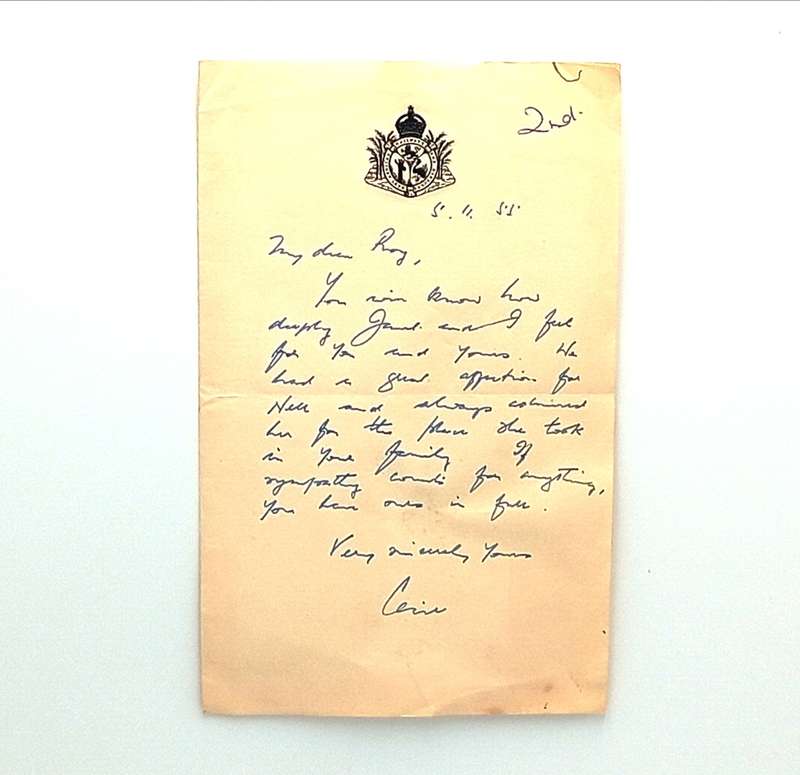 2nd.
5. 11. 55
My dear Roy,
You will know how
deeply Janet and I feel
for you and yours. We
had a great affection for
Nell and always admired
her for the place she took
in your family. If
sympathy counts for anything,
you have ours in full.
Very sincerely yours